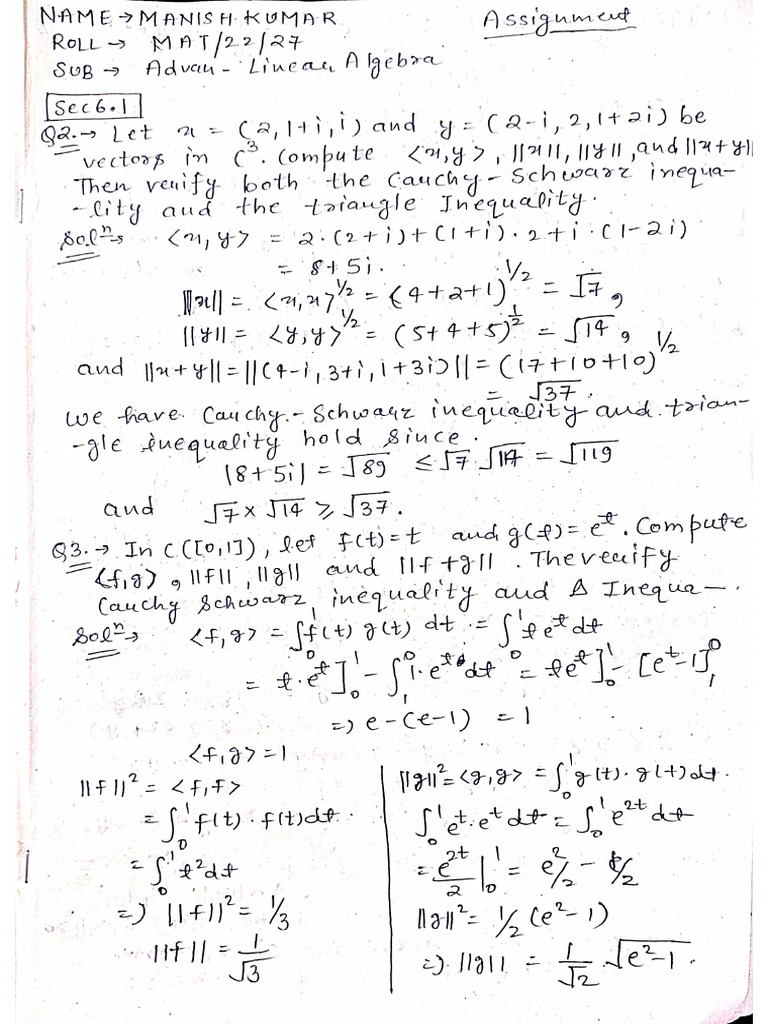 NAME → MANISH KUMAR
Assignment
ROLL → MAT/22/27
SUB → Advan - Linear Algebra
Sec 6.1
Q2. → Let x = (2, 1+i, i) and y = (2-i, 2, 1+2i) be
vectors in C³. Compute <x,y>, ||x||, ||y||, and ||x+y||
Then verify both the Cauchy-Schwarz inequa-
-lity and the triangle Inequality.
Solⁿ → <x, y> = 2·(2+i)+(1+i)·2+i·(1-2i)
= 8+5i.
||x|| = <x,x>^1/2 = (4+2+1)^1/2 = √7,
||y|| = <y,y>^1/2 = (5+4+5)^1/2 = √14,
and ||x+y|| = ||(4-i, 3+i, 1+3i)|| = (17+10+10)^1/2
= √37.
We have Cauchy-Schwarz inequality and trian-
-gle inequality hold since.
|8+5i| = √89 ≤ √7·√14 = √119
and √7 × √14 ≥ √37.
Q3. → In C([0,1]), let f(t)=t and g(t)=e^t. Compute
<f,g>, ||f||, ||g|| and ||f+g||. The verify
Cauchy Schwarz inequality and Δ Inequa-.
Solⁿ → <f,g> = ∫₀¹ f(t) g(t) dt = ∫₀¹ te^t dt
= t·e^t]₀¹ - ∫₁⁰ 1·e^t dt = te^t]₀¹ - [e^t-1]₁⁰
=> e-(e-1) = 1
<f,g> = 1
||f||² = <f,f>
= ∫₀¹ f(t)·f(t)dt.
= ∫₀¹ t²dt
=> ||f||² = 1/3
||f|| = 1/√3
||g||² = <g,g> = ∫₀¹ g(t)·g(t)dt.
∫₀¹ e^t·e^t dt = ∫₀¹ e^2t dt
= e^2t/2 |₀¹ = e²/2 - 1/2
||g||² = 1/2 (e²-1)
=> ||g|| = 1/√2 · √e²-1.